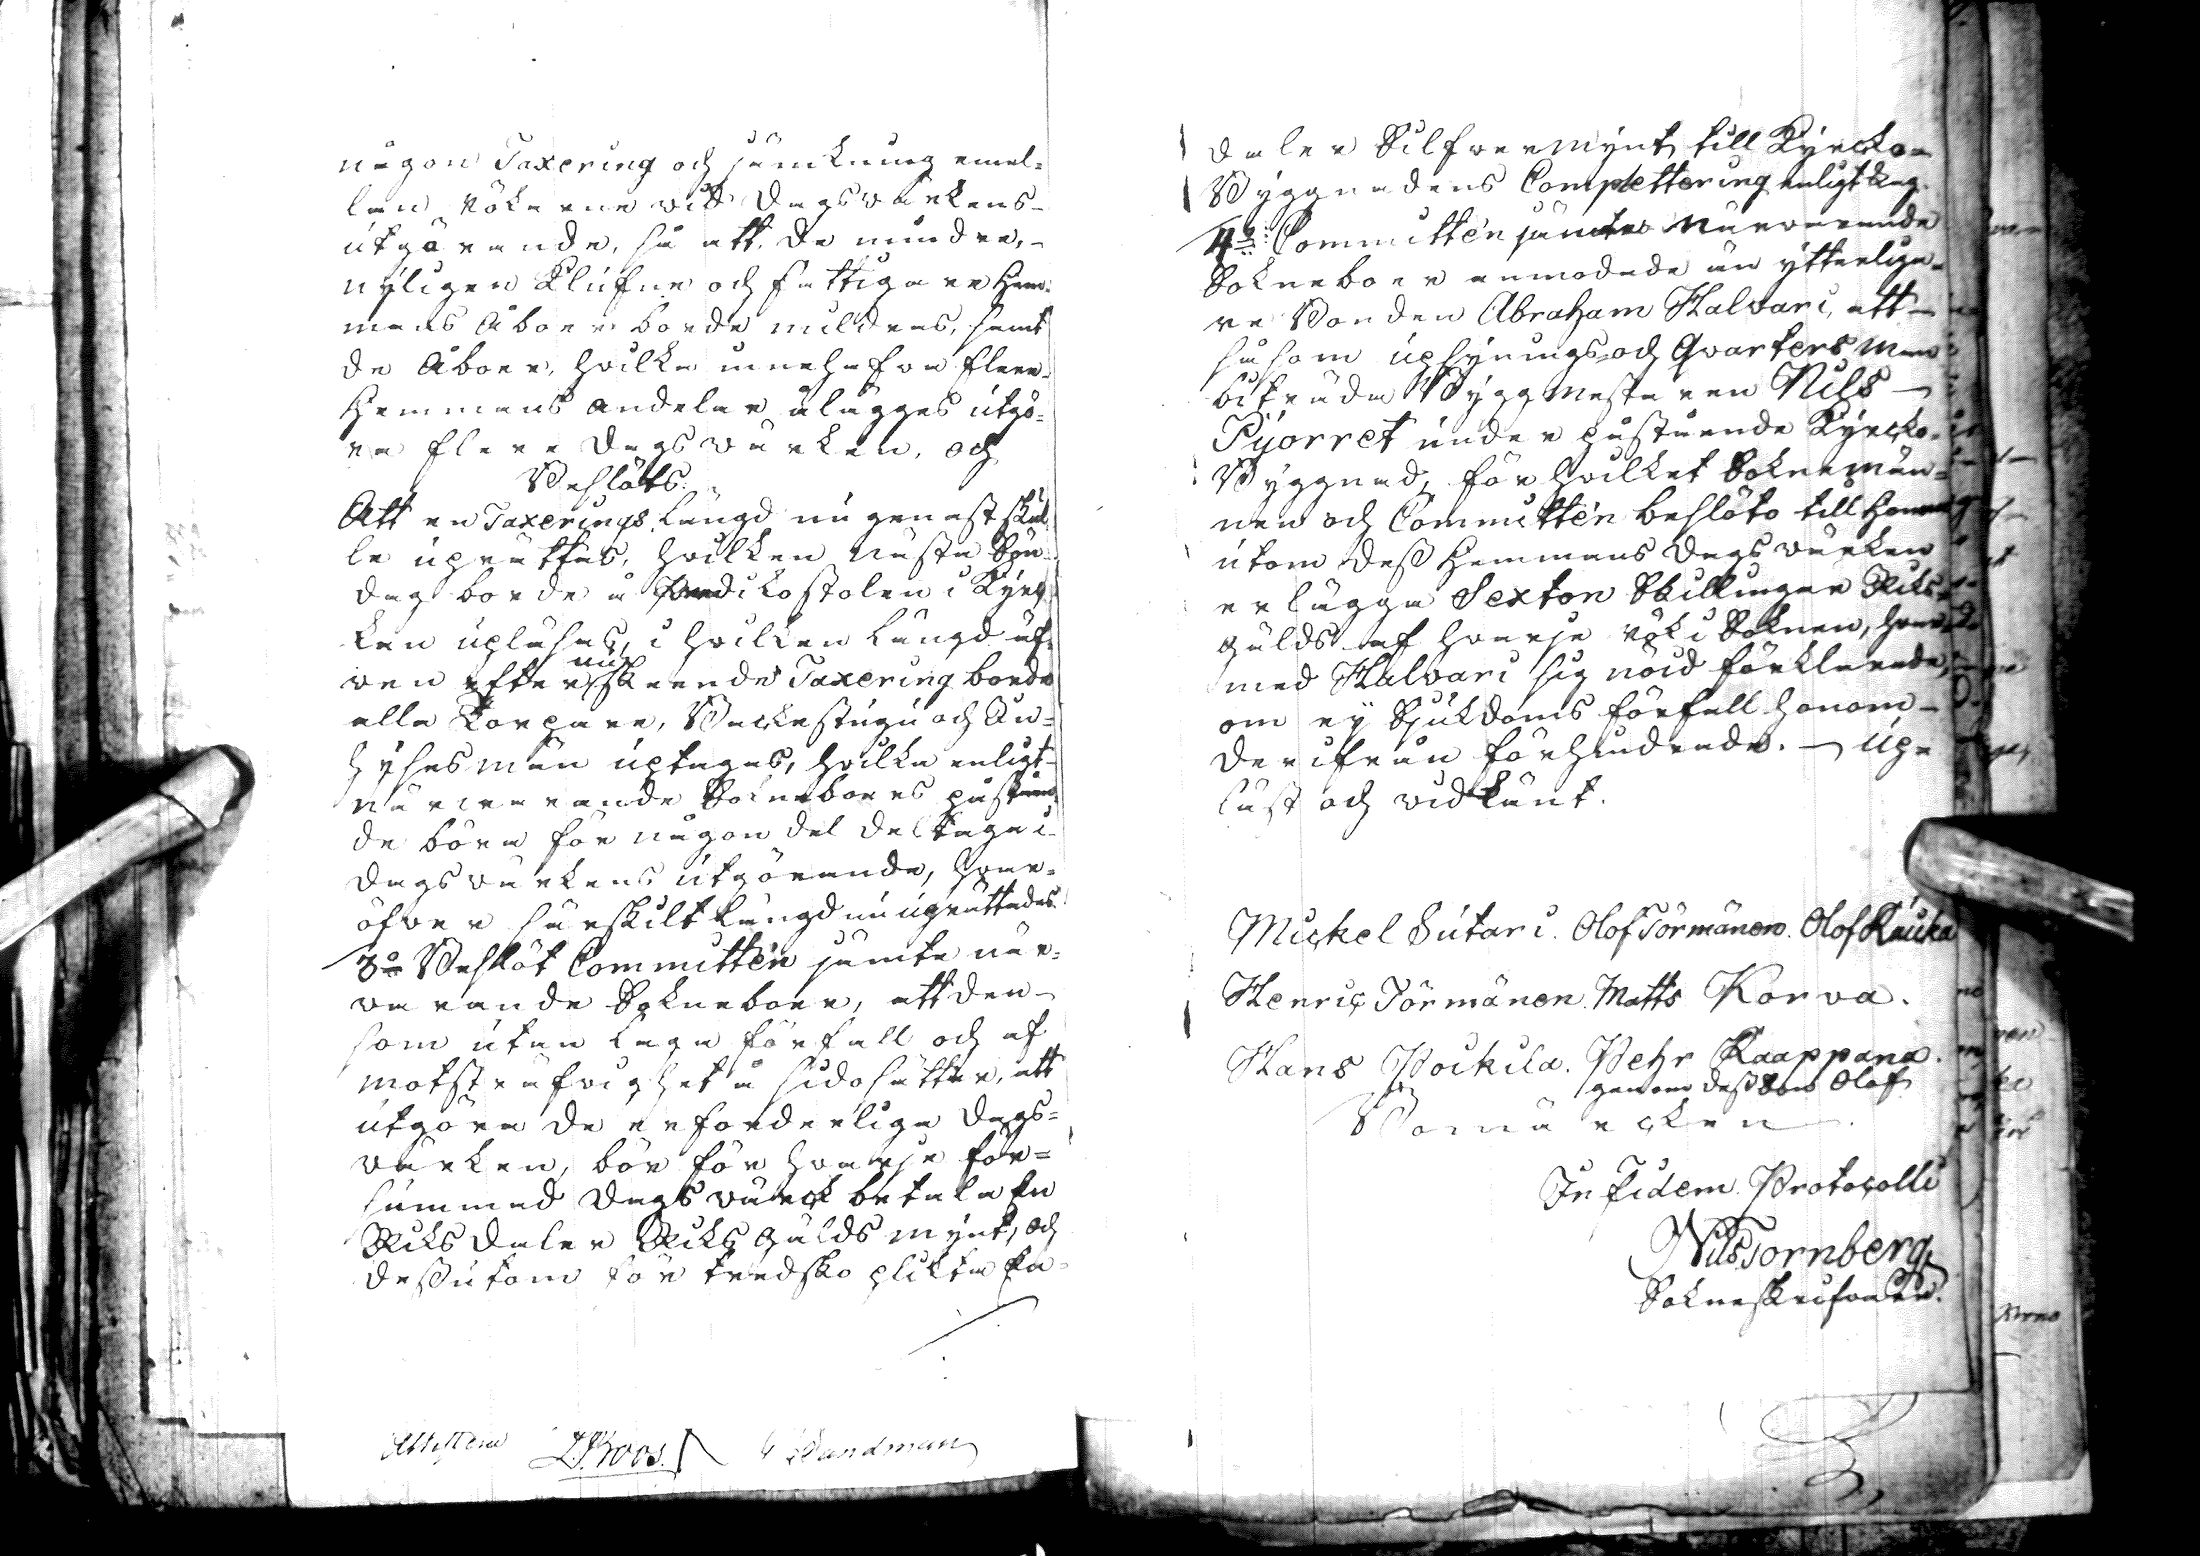 någon Taxering och jämkning emel-
lan rökarne vid Dagsvärkens
utgörande, så att de mindre,
nyligen klufne och fattigare Hem-
mans Åboer borde mildras, samt
de Åboer, hvilka innehafva flere
Hemmans andelar åläggas utgö-
ra flere Dagsvärken, och
Beslöts:
Att en Taxerings Längd nu genast skul-
le uprättas, hvilken nästa Sön-
dag borde i Predikostolen i Kyrk-
kan upläsas, i hvilken Längd äf-
ven efter nu skeende Taxering borde
alla Torpare, Backestugu och In-
hyses män uptagas, hvilka enligt
närvarande Sokneboers påståen-
de böra för någon del deltaga i
Dagsvärkens utgörande, hvar-
öfver särskilt Längd nu uprättades.
3o Beslöt Committén jämte när-
varande Sokneboer, att den
som utan Laga förfall och af
motsträfvighet å sidosätter, att
utgöra de erforderliga Dags-
värken, bör för hvarje för-
summad Dagsvärck betala En
Riksdaler Riksgälds mynt, och
dessutom för tredsko plikta En
Attestera D. Roos. Sandman
daler Silfvermynt till Kyrcko
Byggnadens Complettering enligt Lag.
4o: Committén jämte Närvarande
Sokneboer anmodade än ytterliga-
re Bonden Abraham Halvari, att
såsom upsynings- och Qvarters Man
biträda Byggmästaren Nils
Pyorret under påstående Kyrcko-
Byggnad, för hvilket Soknemän-
nen och Committén beslöto till honom
utom dess Hemmans Dagsvärken
erlägga Sexton Skillingar Riks-
gälds af hvarje rök i Soknen, hvar-
med Halvari sig nöid förklarade,
om ey Sjukdoms förfall honom
derifrån förhindrade. Up-
läst och vidkänt.
Mickel Sutari. Olof Törmänen. Olof Kauka
Henric Törmänen. Matts Korva.
Hans Poikila. Pehr Kaappana.
genom dess Son Olof
Bomärcken
In fidem Protocolli
Nils Tornberg
Sokneskrifvare.